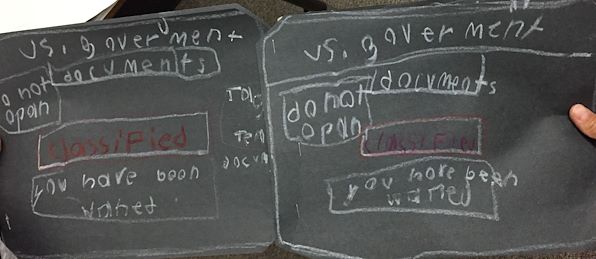 vs. goverment
documents
do not
opan
classified
you have been
warned
vs. goverment
documents
do not
opan
classified
you have been
warned